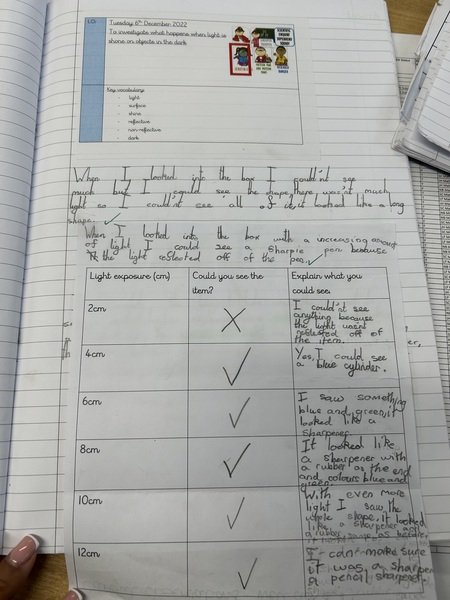 LO
Tuesday 6th December 2022
To investigate what happens when light is
shone on objects in the dark
Key vocabulary:
- light
- surface
- shine
- reflective
- non-reflective
- dark
When I looked into the box I could'nt see
much but I could see the shape there was'nt much
light so I could'nt see all of it it looked like a long
shape.
When I looked into the box with a increasing amount
of light I could see a sharpie pen because
the light reflected off of the pen.
Light exposure (cm)
Could you see the item?
Explain what you could see.
2cm
I could'nt see
anything because
the light wasnt
reflected off of
the item.
4cm
Yes, I could see
a blue cylinder.
6cm
I saw something
blue and green, it
looked like a
sharpener
8cm
It looked like
a sharpener with
a rubber at the end
and colours blue and
green.
10cm
With even more
light I saw the
whole shape, it looked
like a sharpener and
a rubber
as before,
12cm
I can make sure
it was a sharpen
a pencil sharpener.